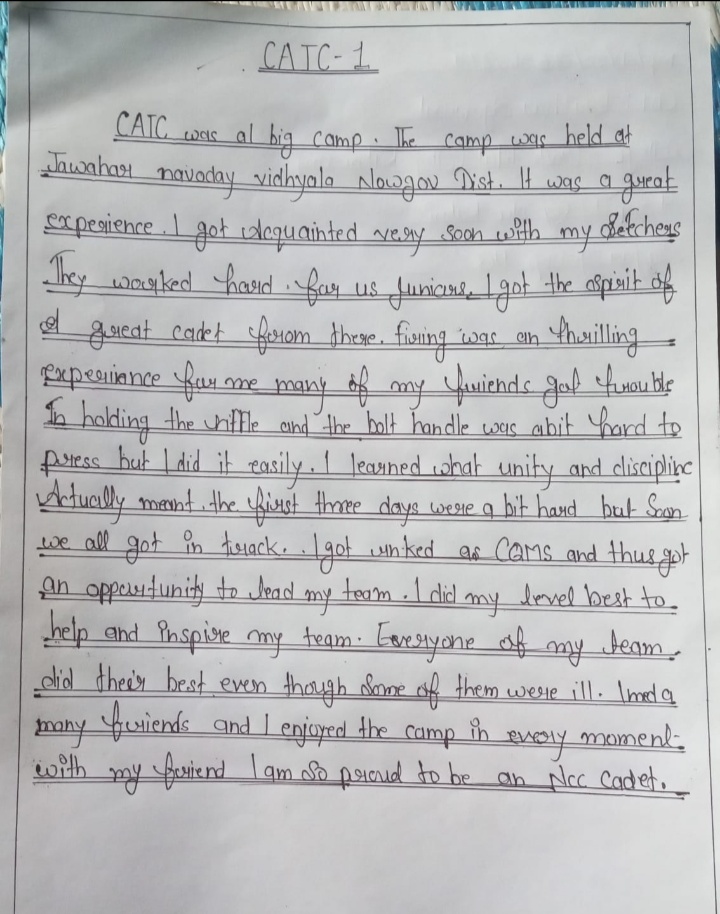 CATC-1
CATC was al big camp. The camp was held at
Jawahar navaday vidhyala Nowgov Dist. It was a great
expegience. I got acquainted very soon with my
They worked hard. for us juniors. I got the aspirit of
a great cadet forom there. firing was an thrilling
experiance for me many of my friends got trouble
In holding the riffle and the bolt handle was abit hard to
press but I did it easily. I learned what unity and discipline
Actually meant. the first three days were a bit hard but soon
we all got in track.. I got as CQMS and thus got
an opportunity to lead my team. I did my level best to
help and inspire my team. Everyone of my team
did their best even though some of them were ill. I
many friends and I enjoyed the camp in every moment
with my foriend I am so proud to be an Ncc Cadet.